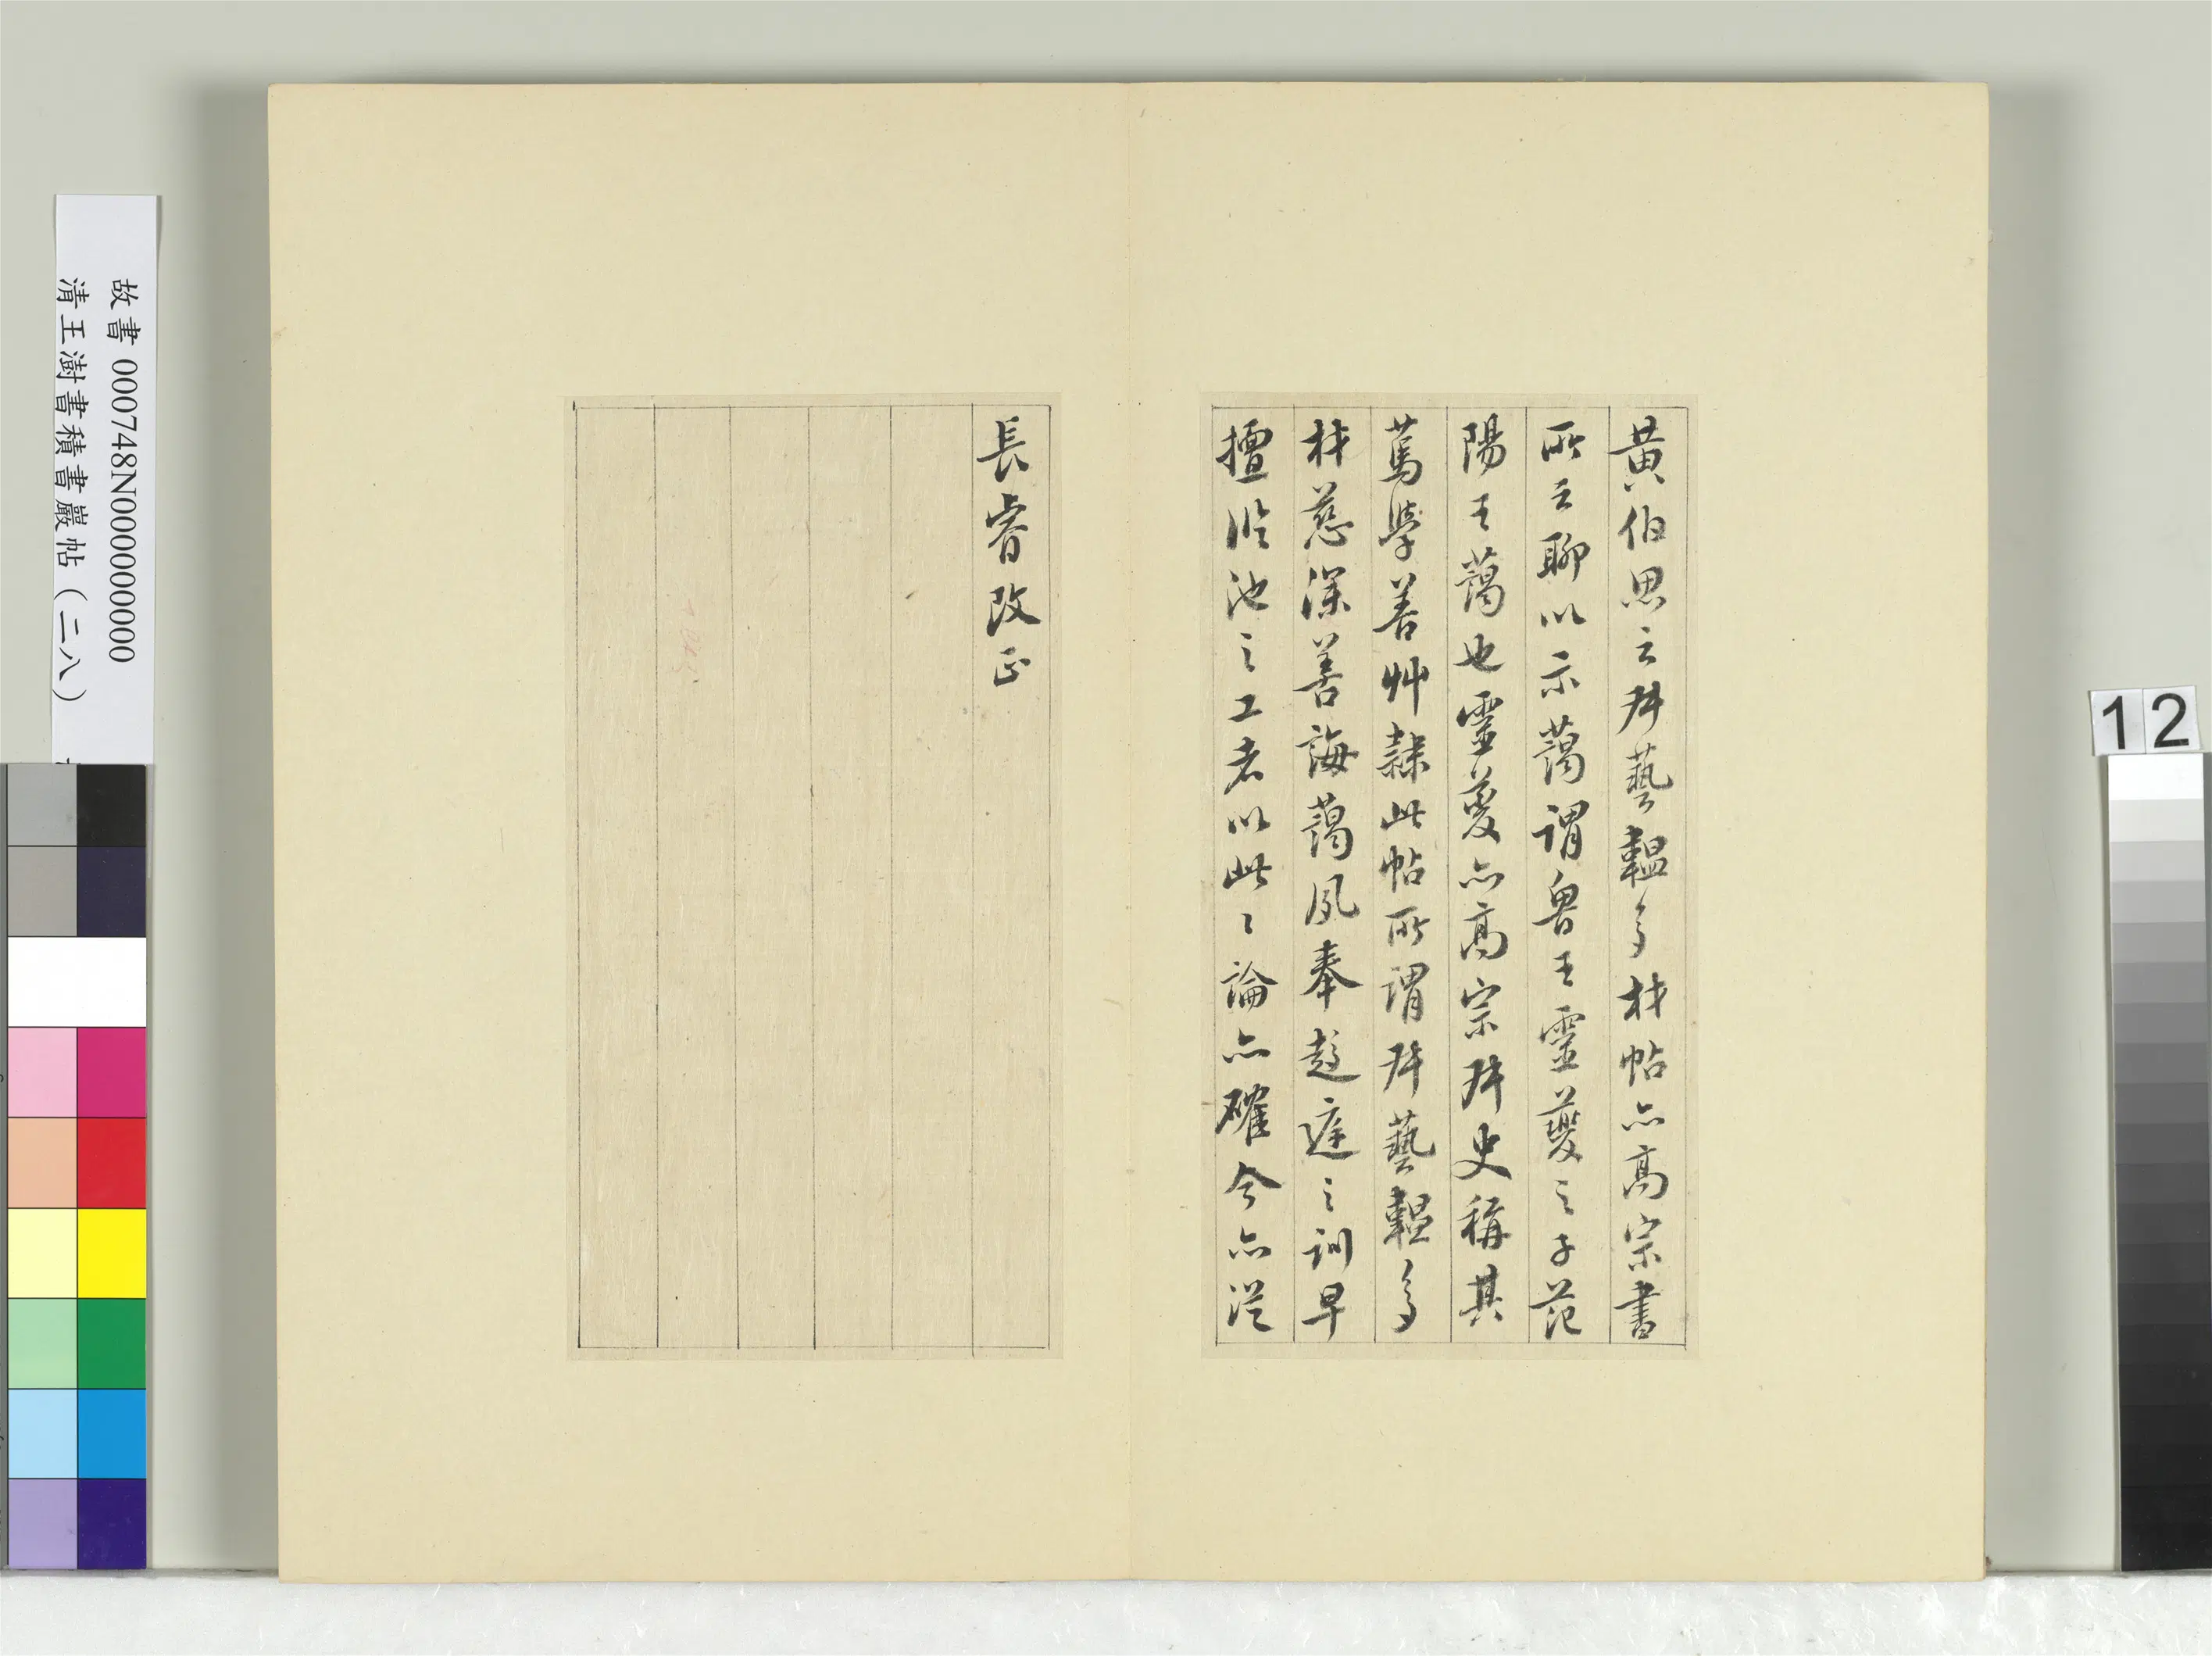 黄伯思云叔藝韞多材帖亦高宗書
所云聊以示藹謂魯王靈夔之子范
陽王藹也靈夔亦高宗叔史稱其
篤學善艸隸此帖所謂叔藝韞多
材慈深善誨藹夙奉趨庭之訓早
擅臨池之工者以此〻論亦確今亦從
長睿改正
故書 000748N000000000
清王澍書積書巖帖(二八)
12